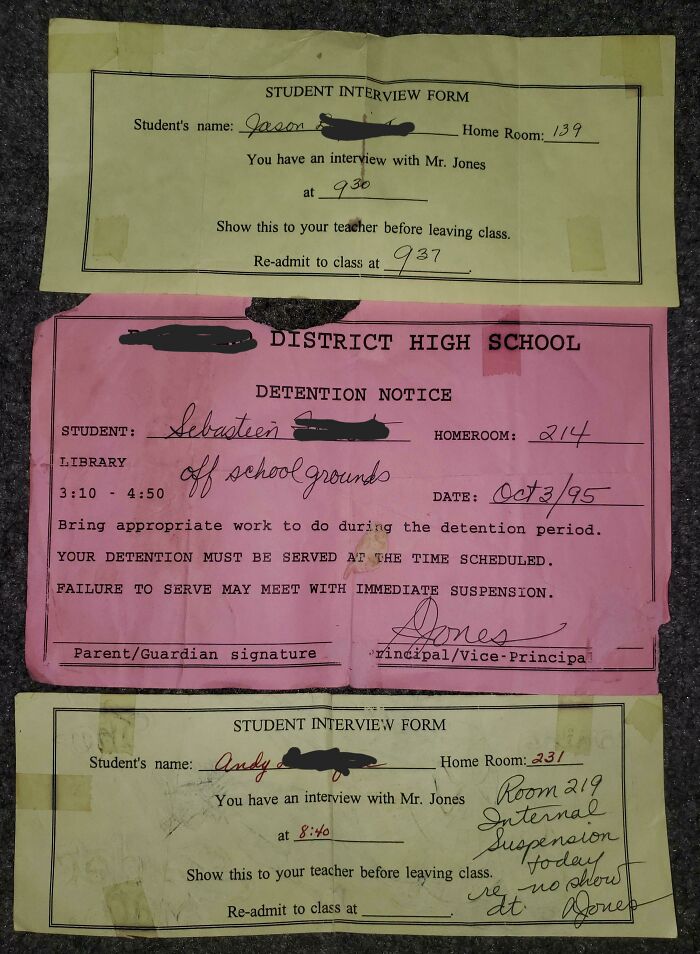 STUDENT INTERVIEW FORM
Student's name: Jason Home Room: 139
You have an interview with Mr. Jones
at 930
Show this to your teacher before leaving class.
Re-admit to class at 937
DISTRICT HIGH SCHOOL
DETENTION NOTICE
STUDENT: Sebastien HOMEROOM: 214
LIBRARY
off school grounds
3:10 - 4:50 DATE: Oct 3/95
Bring appropriate work to do during the detention period.
YOUR DETENTION MUST BE SERVED AT THE TIME SCHEDULED.
FAILURE TO SERVE MAY MEET WITH IMMEDIATE SUSPENSION.
DJones
Parent/Guardian signature rincipal/Vice-Principa
STUDENT INTERVIEW FORM
Student's name: Andy Home Room: 231
You have an interview with Mr. Jones
at 8:40
Show this to your teacher before leaving class.
Re-admit to class at
Room 219
Internal
Suspension
today
re no show
dt. DJones